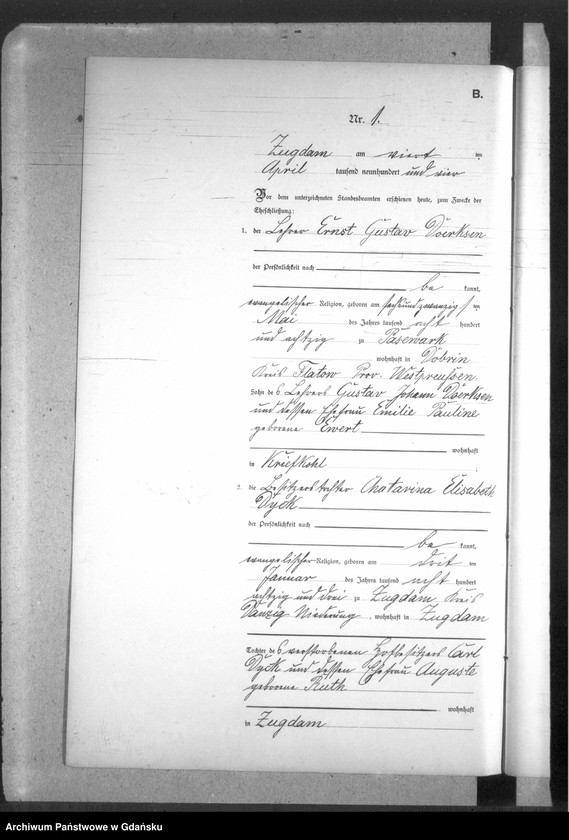 B.
Nr. 1.
Zugdam am viert en
April tausend neunhundert und vier
Vor dem unterzeichneten Standesbeamten erschienen heute, zum Zwecke der
Eheschließung:
1. der Lehrer Ernst Gustav Doerksen
der Persönlichkeit nach
be kannt,
evangelischer Religion, geboren am sechsundzwanzigst en
Mai des Jahres tausend acht hundert
und achtzig zu Pasewark
wohnhaft in Dobrin
Kreis Flatow Prov. Westpreußen.
Sohn des Lehrers Gustav Johann Doerksen
und dessen Ehefrau Emilie Pauline
geborene Ewert
wohnhaft
in Kriefkohl
2. die Besitzerstochter Chatarina Elisabeth
Dyck
der Persönlichkeit nach
be kannt,
evangelischer Religion, geboren am dritt en
Januar des Jahres tausend acht hundert
achtzig und drei zu Zugdam Kreis
Danzig Niederung, wohnhaft in Zugdam
Tochter des verstorbenen Hofbesitzers Carl
Dyck und dessen Ehefrau Auguste
geborene Ruth
wohnhaft
in Zugdam
Archiwum Państwowe w Gdańsku